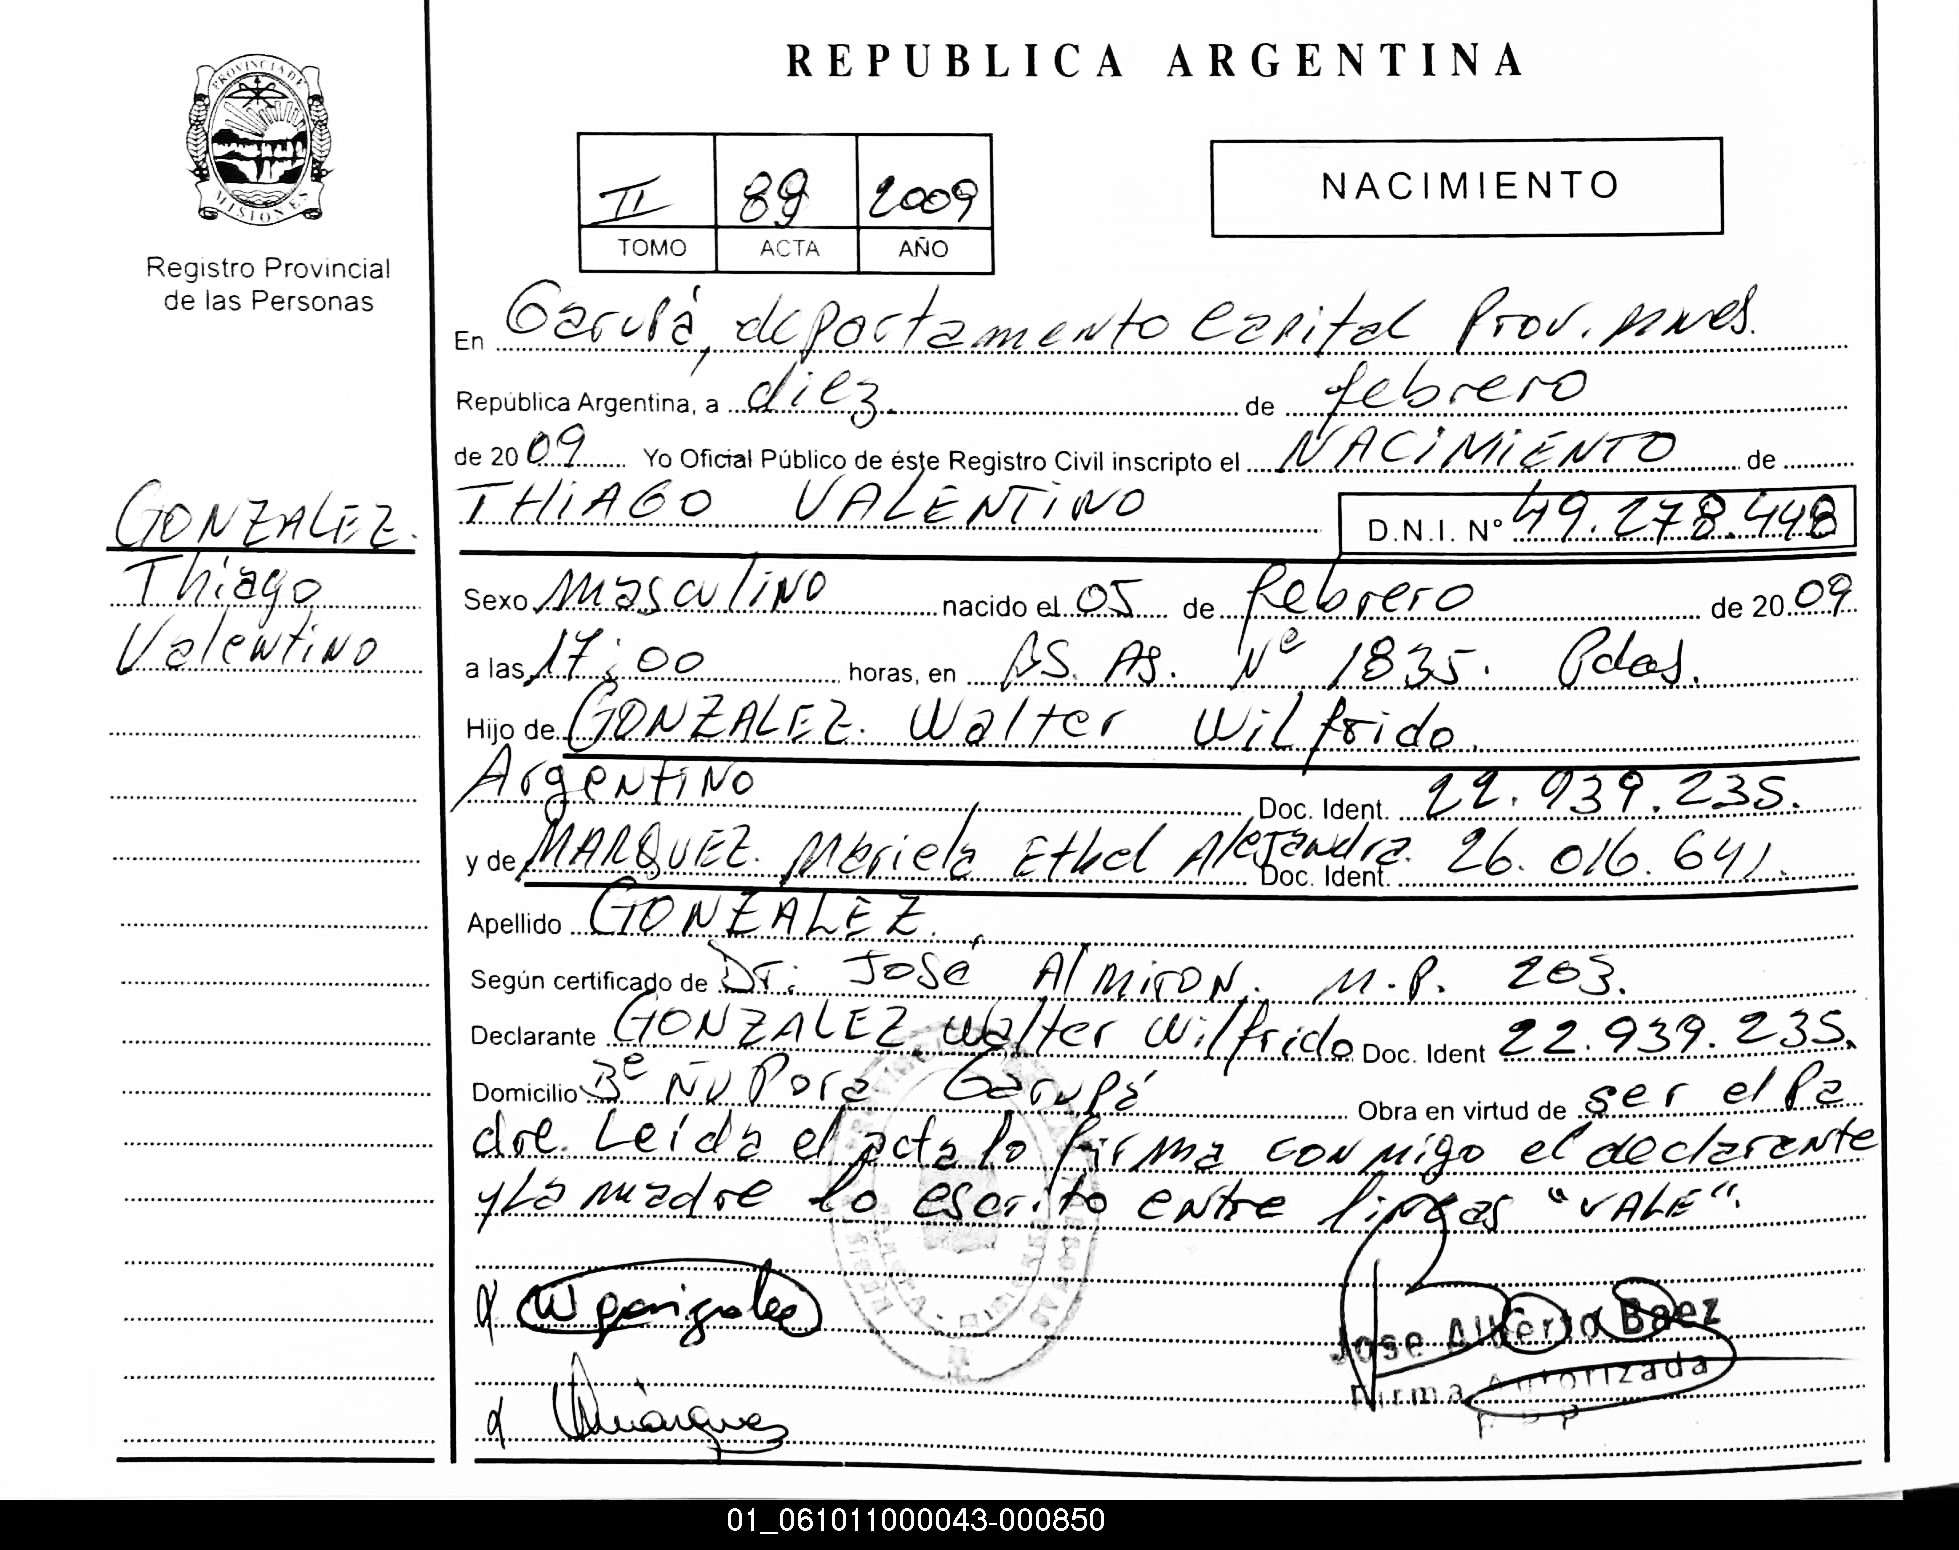 REPUBLICA ARGENTINA
PROVINCIA DE
MISIONES
Registro Provincial
de las Personas
II 89 2009
TOMO ACTA AÑO
NACIMIENTO
En Garupá, departamento Capital Prov. Mnes.
República Argentina, a diez de febrero
de 2009 Yo Oficial Público de éste Registro Civil inscripto el NACIMIENTO de
THIAGO VALENTINO D.N.I. Nº 49.278.448
GONZALEZ.
Thiago
Valentino
Sexo Masculino nacido el 05 de febrero de 2009
a las 17:00 horas, en BS. AS. Nº 1835. Pdas.
Hijo de GONZALEZ. Walter Wilfrido.
Argentino Doc. Ident. 22.939.235.
y de MARQUEZ. Mariela Ethel Alejandra. Doc. Ident. 26.016.641.
Apellido GONZALEZ.
Según certificado de Dr: José Almiron. M.P. 203.
Declarante GONZALEZ Walter Wilfrido Doc. Ident 22.939.235.
Domicilio Bº Ñu Pora Garupá Obra en virtud de ser el Pa
dre. Leída el acta lo firma conmigo el declarante
y La madre lo escrito entre lineas "VALE".
Jose Alberto Baez
Firma Autorizada
01_061011000043-000850